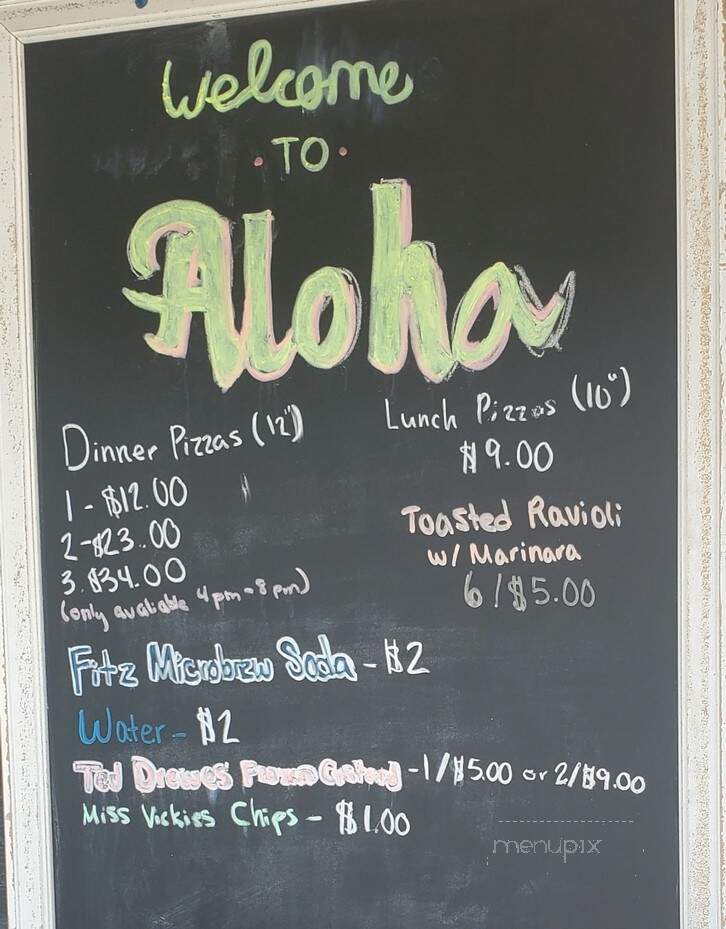 Welcome
• TO •
Aloha
Dinner Pizzas (12")
1 - $12.00
2 - $23.00
3. $34.00
(only available 4pm - 8pm)
Lunch Pizzas (10")
$9.00
Toasted Ravioli
w/ Marinara
6/$5.00
Fitz Microbrew Soda - $2
Water - $2
Ted Drewes Frozen Custard - 1/$5.00 or 2/$9.00
Miss Vickies Chips - $1.00
menupix